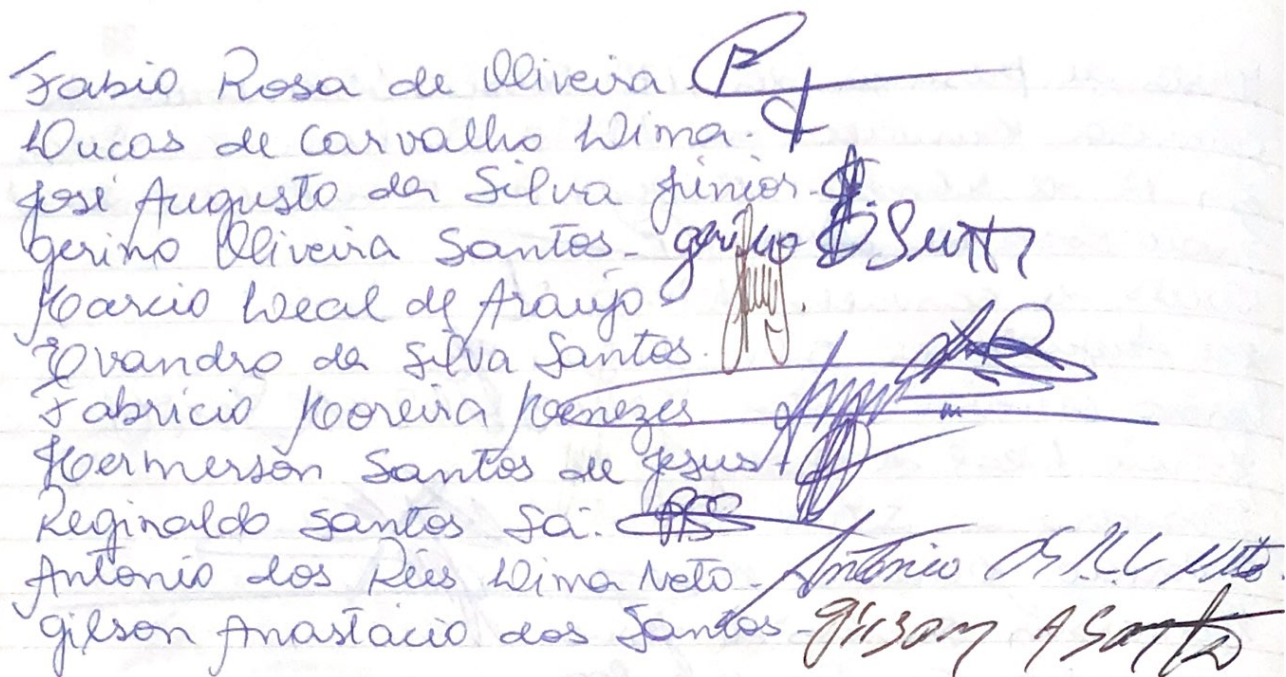 Fabio Rosa de Oliveira
Lucas de Carvalho Lima.
José Augusto da Silva Júnior.
Gerino Oliveira Santos - Gerino O. Santos
Marcio Leal de Araujo
Evandro da Silva Santos.
Fabricio Moreira Menezes
Hermerson Santos de Jesus
Reginaldo Santos Sá.
Antonio dos Reis Lima Neto - Antonio
Gilson Anastacio dos Santos - Gilson A Santos